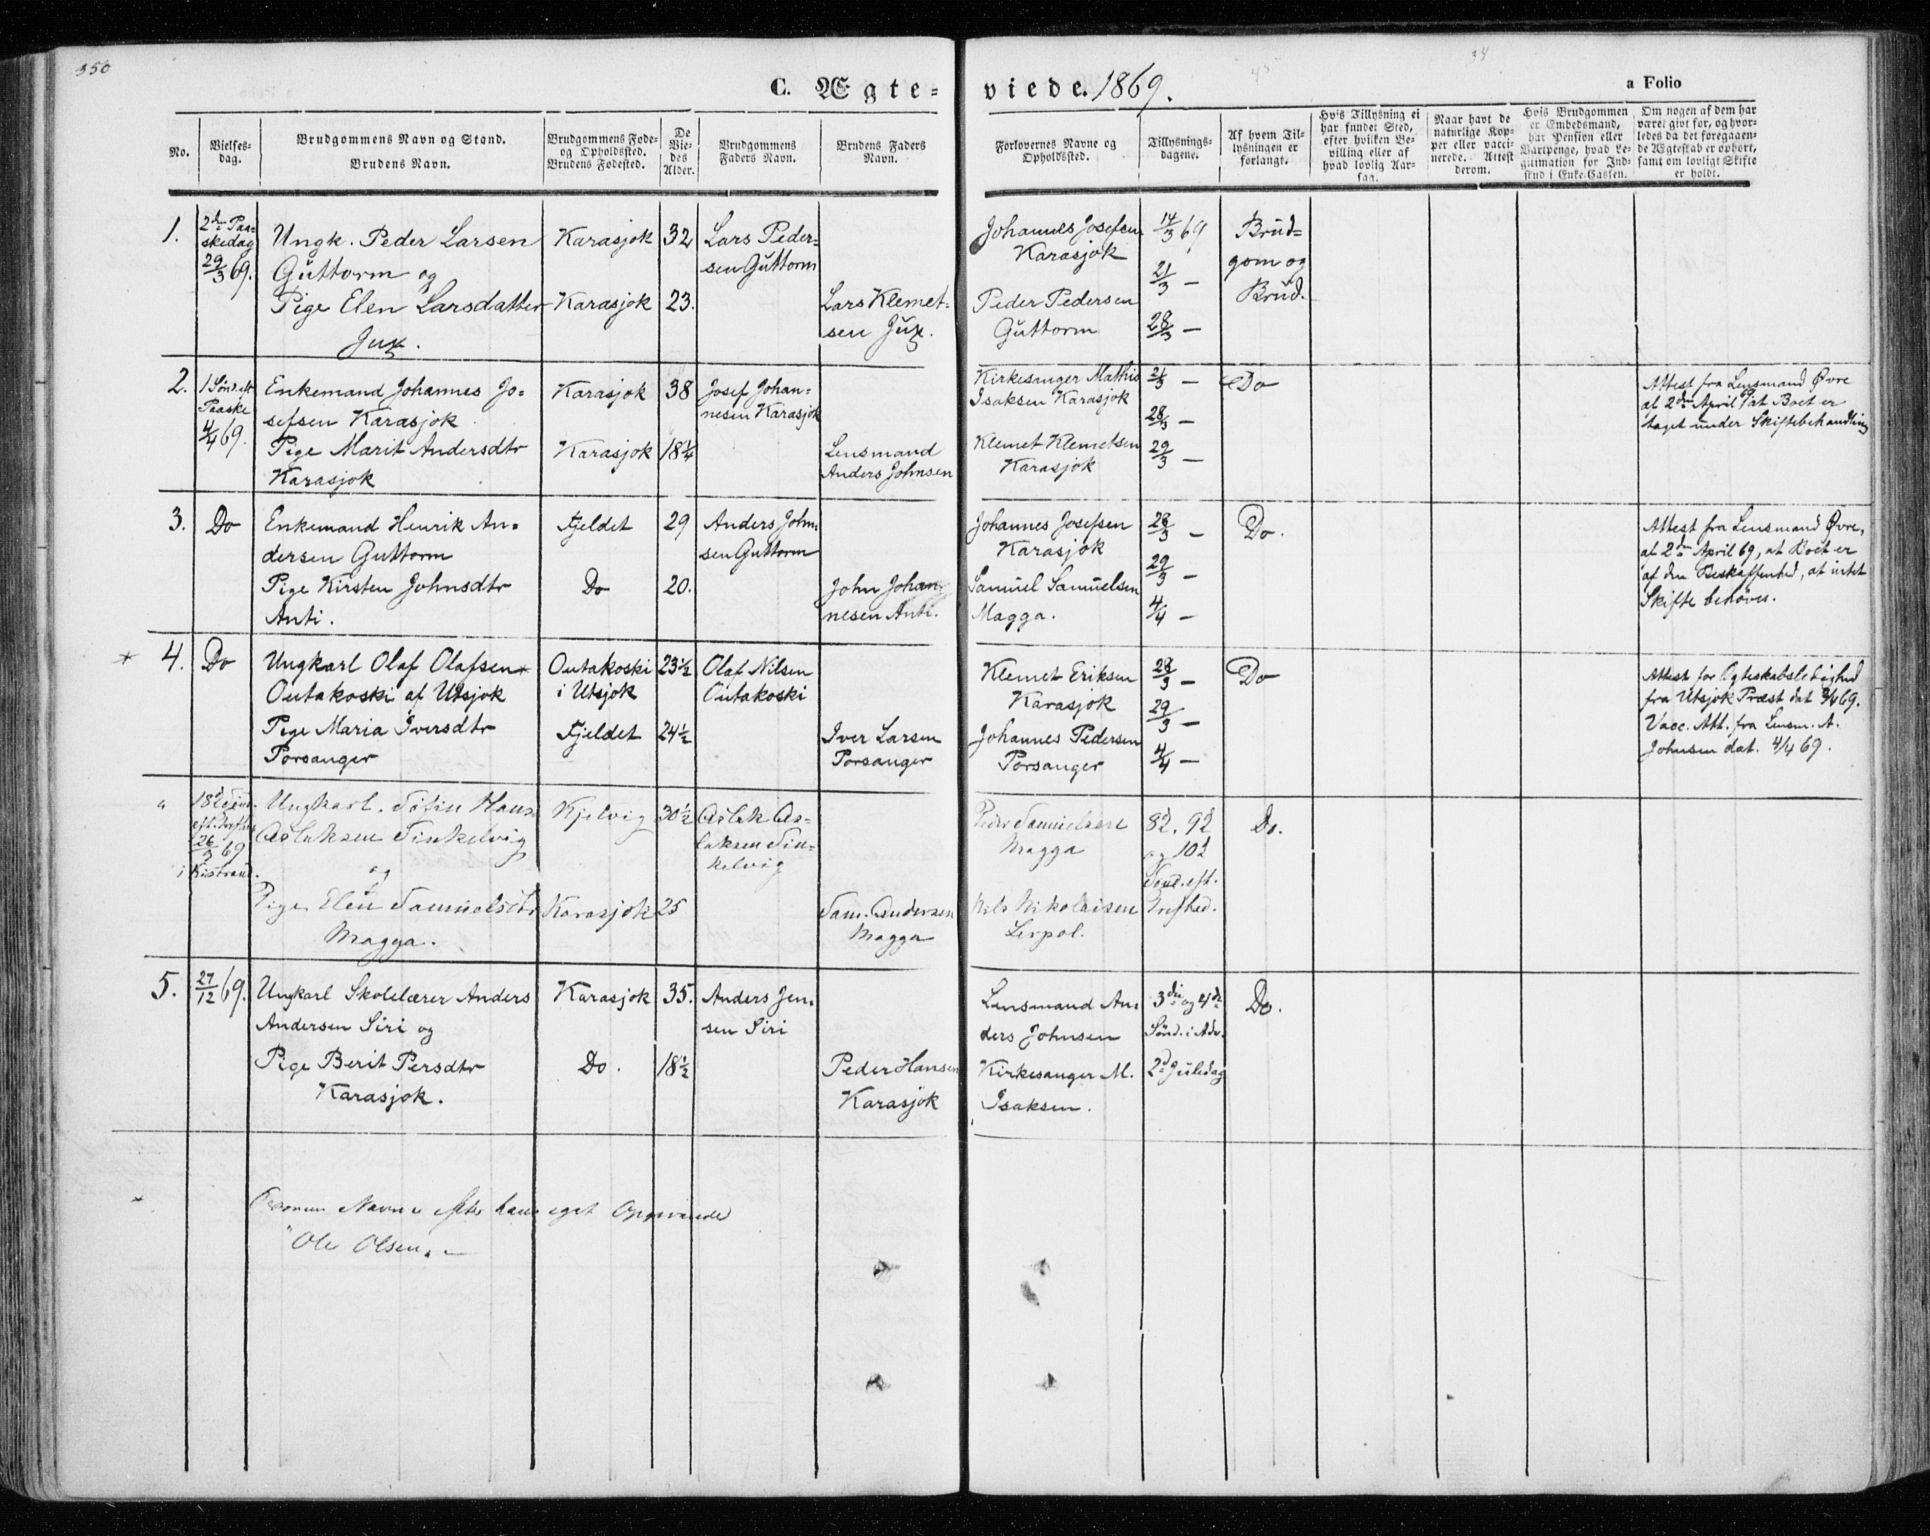 350
C. Ægteviede. 1869.
a Folio
No.
Vielsesdag.
Brudgommens Navn og Stand.
Brudens Navn.
Brudgommens Fødeog Opholdssted.
Brudens Fødested.
De Viedes Alder.
Brudgommens Faders Navn.
Brudens Faders Navn.
Forlovernes Navne og Opholdssted.
Tillysningsdagene.
Af hvem Tillysningen er forlangt.
Hvis Tillysning ei har fundet Sted, efter hvilken Bevilling eller af hvad lovlig Aarsag.
Naar havt de naturlige Kopper eller vaccinerede. Attest derom.
Hvis Brudgommen er Embedsmand, har Pension eller Vartpenge, hvad Legitimation for Indskud i Enke-Cassen.
Om nogen af dem har været gift før, og hvorledes da det foregaaende Ægteskab er ophørt, samt om lovligt Skifte er holdt.
1.
2den Paaskedag
29/3 69.
Ungk. Peder Larsen
Guttorm og
Pige Elen Larsdatter
Jux.
Karasjok
Karasjok
32
23.
Lars Pedersen Guttorm
Lars Klemetsen Jux.
Johannes Josefsen
Karasjok
Peder Pedersen
Guttorm
14/3 69
21/3 —
28/3 —
Brudgom og Brud.
2.
1 Sønd. eft
Paaske
4/4 69.
Enkemand Johannes Josefsen Karasjok
Pige Marit Andersdtr
Karasjok
Karasjok
Karasjok
38
18¼
Josef Johannesen Karasjok
Lensmand
Anders Johnsen
Kirkesanger Mathis
Isaksen Karasjok
Klemet Klemetsen
Karasjok
21/3 —
28/3 —
29/3 —
Do
Attest fra Lensmand Øvre
at 2den April 69 at Boet er
taget under Skiftebehandling
3.
Do
Enkemand Henrik Andersen Guttorm
Pige Kirsten Johnsdtr
Anti.
Fjeldet
Do
29
20.
Anders Johnsen Guttorm
John Johannesen Anti.
Johannes Josefsen
Karasjok
Samuel Samuelsen
Magga.
28/3 —
29/3 —
4/4 —
Do.
Attest fra Lensmand Øvre,
at 2den April 69, at Boet er
af den Beskaffenhed, at intet
Skifte behøves.
* 4.
Do
Ungkarl Olaf Olafsen *
Outakoski af Utsjok
Pige Maria Iversdtr
Porsanger
Outakoski
i Utsjok
Fjeldet
23½
24½
Olaf Nilsen
Outakoski
Iver Larsen
Porsanger
Klemet Eriksen
Karasjok
Johannes Pedersen
Porsanger
28/3 —
29/3 —
4/4 —
Do
Attest for Ægteskabsledighed
fra Utsjok Præst dat 3/4 69.
Vacc. Att. fra Lensm. A.
Johnsen dat. 4/4 69.
a
26/9 69
i Kistrand.
Ungkarl. Tofin Hans
Aslaksen Finkelvig
og
Pige Elen Samuelsdtr
Magga.
Kjelvig
Karasjok
30½
25
Aslak Aslaksen Finkelvig
Sam. Andersen
Magga
Peder Samuelsen
Magga
Nils Nikolaisen
Lerpol.
8d, 9d
og 10d
Sønd. eft.
Trefhed.
Do.
5.
27/12 69.
Ungkarl Skolelærer Anders
Andersen Siri og
Pige Berit Persdtr
Karasjok.
Karasjok
Do.
35.
18½
Anders Jensen Siri
Peder Hansen
Karasjok
Lensmand Anders Johnsen
Kirkesanger M.
Isaksen.
3die og 4de
Sønd. i Adv.
2d Juledag
Do.
*
Navn efter hans eget
"Ole Olsen. —